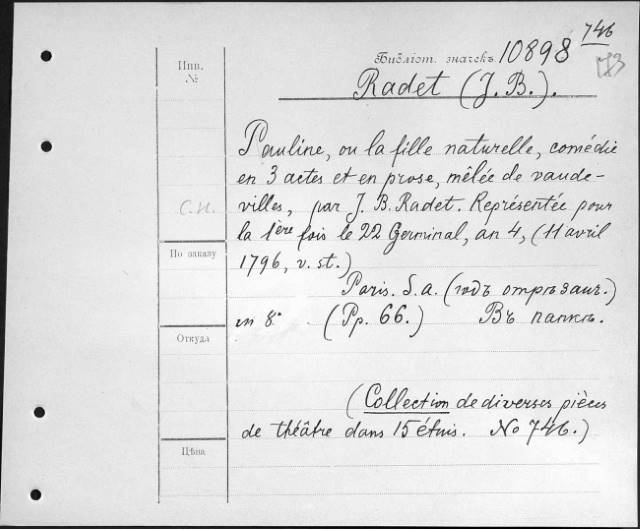 746
Библіот. значекъ 10898
Инв.
№
Radet (J. B.).
Pauline, ou la fille naturelle, comédie
en 3 actes et en prose, mêlée de vaude-
villes, par J. B. Radet. Représentée pour
С.И.
la 1ère fois le 22 Germinal, an 4, (11 avril
По заказу
1796, v. st.)
Paris. S. a. (годъ отрѣзанъ.)
in 8° (Pp. 66.) Въ папкѣ.
Откуда
(Collection de diverses pièces
de théâtre dans 15 étuis. No 746.)
Цѣна